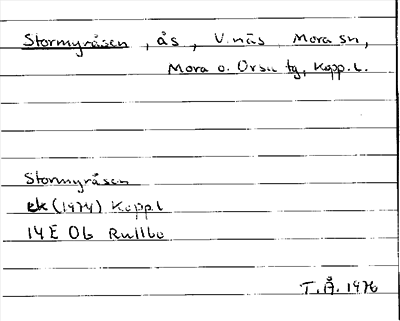 Stormyråsen, ås, V. näs Mora sn,
Mora o. Orsa tg, Kopp. l.
Stormyråsen
ek (1974) Kopp. l
14 E 0b Rullbo
T. Å. 1976